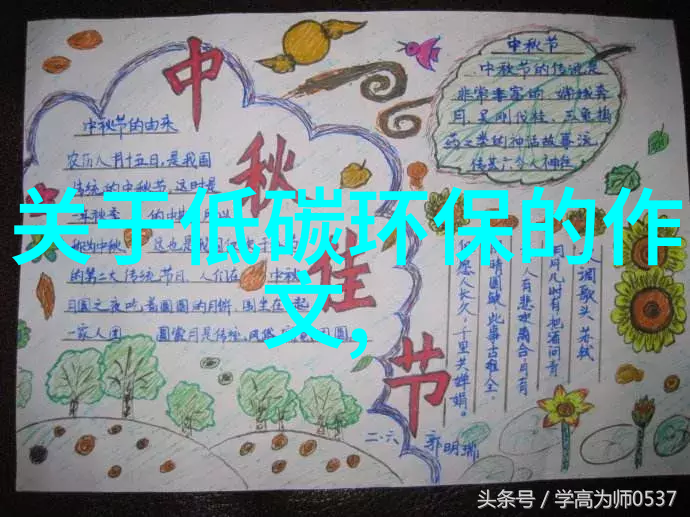 中秋佳节
关于低碳环保的作
文,
中秋节的由来
农历八月十五日,是我国
传统的中秋节,这时是
一年秋季
的第二大传统节日,人们在 中秋
月圆之夜吃着圆圆的月饼,围坐在一起
一家人团
中秋节
中秋节的传说是
非常丰富的,嫦娥奔
月,吴刚伐桂,玉兔捣
药之类的神话故事流
传甚广
水调歌头 苏轼
明月几时有把酒问青
人有悲欢离合月有
阴晴圆缺,此事古难全。
但愿人长久,千里共婵娟。
二·六 郭明瑞
头条号/学高为师0537